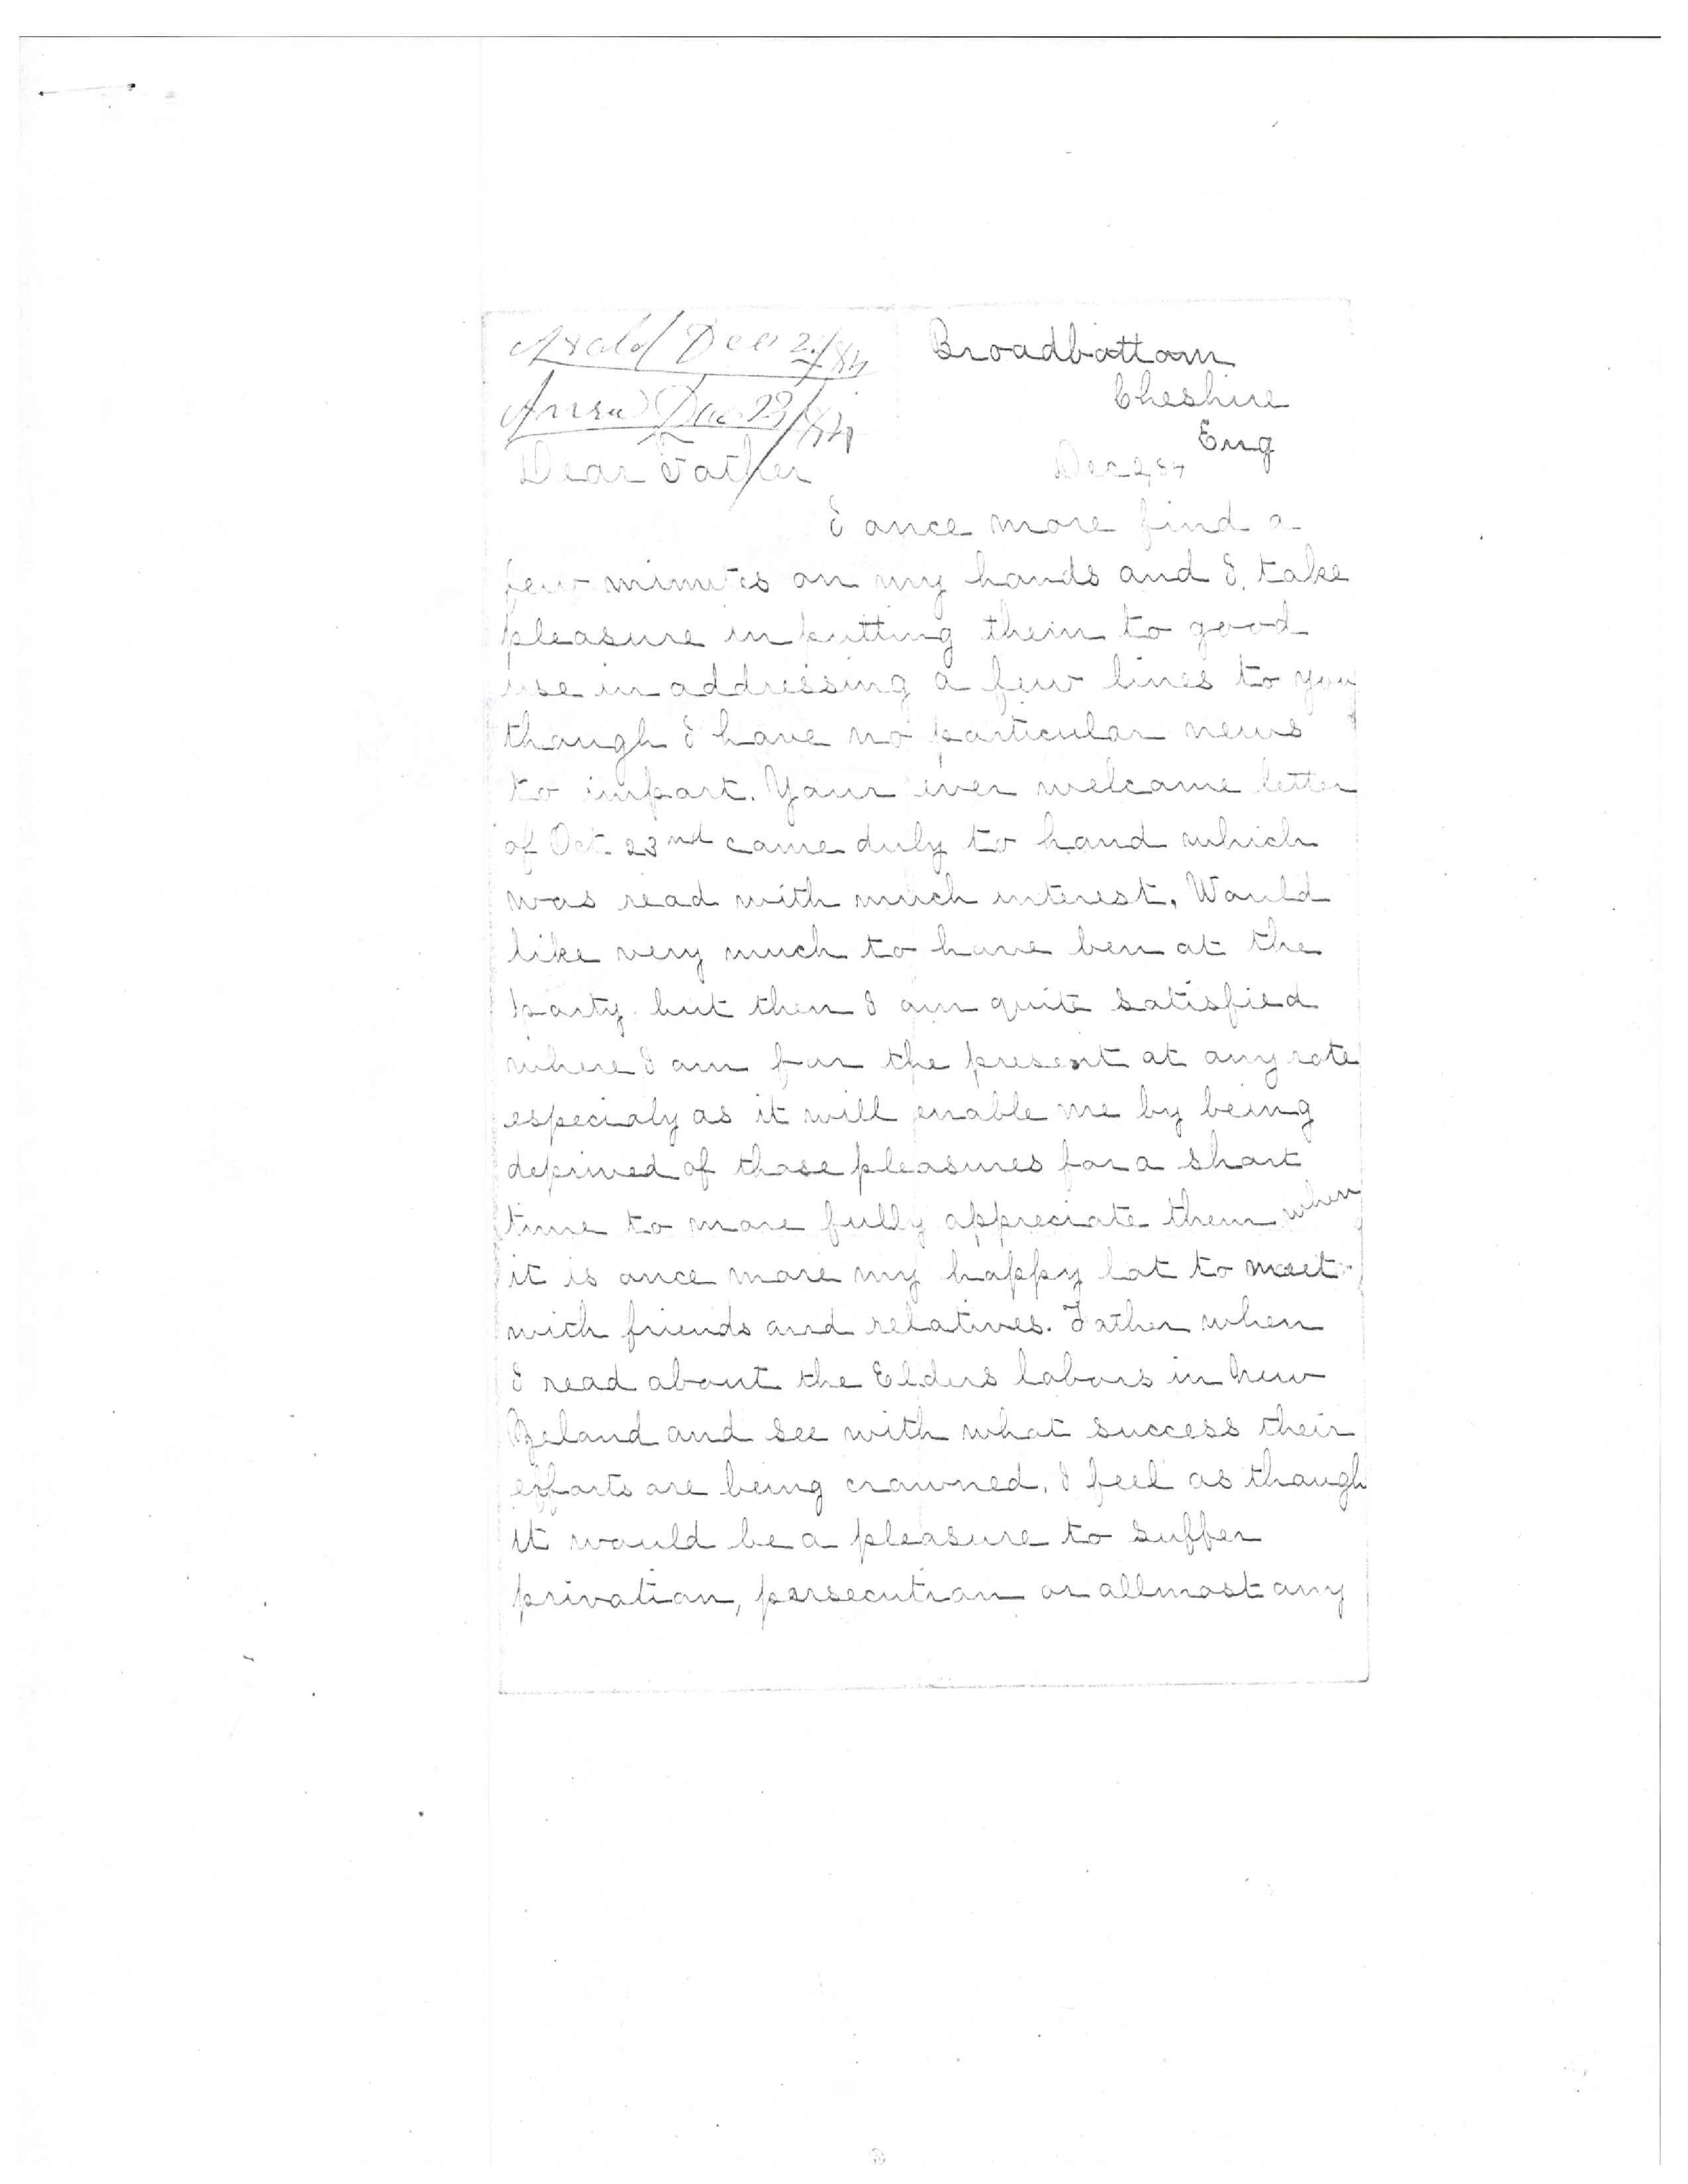 Dec 2/84
Broadbottom
Cheshire
Eng
Answd Dec 23/84
Dear Father
Dec 2, 84
I once more find a
few minutes on my hands and I take
pleasure in putting them to good
use in addressing a few lines to you
though I have no particular news
to impart. Your ever welcome letter
of Oct 23nd came duly to hand which
was read with much interest. Would
like very much to have ben at the
party but then I am quite satisfied
where I am fur the present at any rate
especialy as it will enable me by being
deprived of those pleasures for a short
time to more fully appreciate them when
it is once more my happy lot to meet
with friends and relatives. Father when
I read about the Elders labors in new
Zeland and see with what success their
efforts are being crowned. I feel as though
it would be a pleasure to suffer
privation, persecution or allmost any